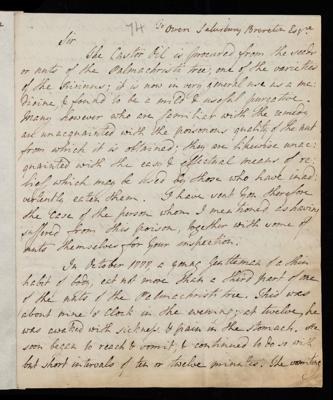 74
To Owen Salusbury Brereton Esqre
Sir
The Castor Oil is procured from the seeds
or nuts of the Palmachristi tree, one of the varieties
of the Ricinus; it is now in very general use as a me-
dicine, & found to be a mild & useful purgative.
Many however who are familiar with the remedy
are unacquainted with the poisonous quality of the nut
from which it is obtained; they are likewise unac-
quainted with the easy & effectual means of re-
lief which may be used by those who have inad-
vertently eaten them. I have sent you therefore
the case of the person whom I mentioned as having
suffered from this poison, together with some of
nuts themselves for your inspection.
In October 1777, a young Gentleman of a thin
habit of body, eat not more than a third part of one
of the nuts of the Palmachristi tree. This was
about nine o'Clock in the evening; at twelve, he
was awaked with sickness & pain in the stomach. He
soon began to reach & vomit, & continued to do so with
but short intervals of ten or twelve minutes. The vomiting